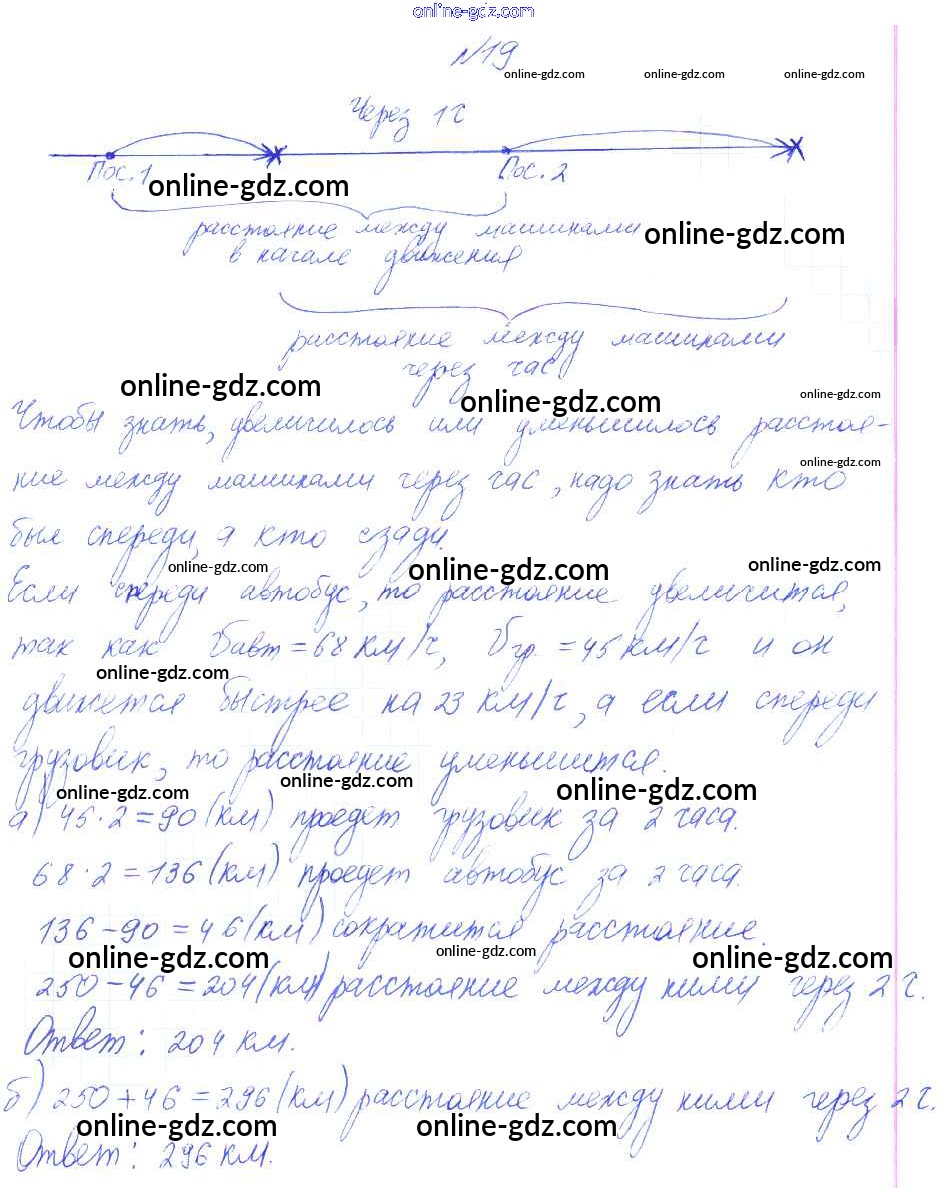 online-gdz.com
№19
online-gdz.com online-gdz.com online-gdz.com
Через 1 ч
Пос. 1 Пос. 2
online-gdz.com
расстояние между машинами online-gdz.com
в начале движения
расстояние между машинами
через час
online-gdz.com online-gdz.com online-gdz.com
Чтобы знать, увеличилось или уменьшилось расстоя-
online-gdz.com
ние между машинами через час, надо знать кто
был спереди, а кто сзади.
online-gdz.com online-gdz.com online-gdz.com
Если спереди автобус, то расстояние увеличится,
так как Vавт = 68 км/ч, Vгр. = 45 км/ч и он
online-gdz.com
движется быстрее на 23 км/ч, а если спереди
грузовик, то расстояние уменьшится.
online-gdz.com online-gdz.com online-gdz.com
а) 45·2=90 (км) проедет грузовик за 2 часа.
68·2=136 (км) проедет автобус за 2 часа.
136-90=46 (км) сократится расстояние.
online-gdz.com online-gdz.com online-gdz.com
250-46=204 (км) расстояние между ними через 2 ч.
Ответ: 204 км.
б) 250+46=296 (км) расстояние между ними через 2 ч.
online-gdz.com online-gdz.com online-gdz.com
Ответ: 296 км.